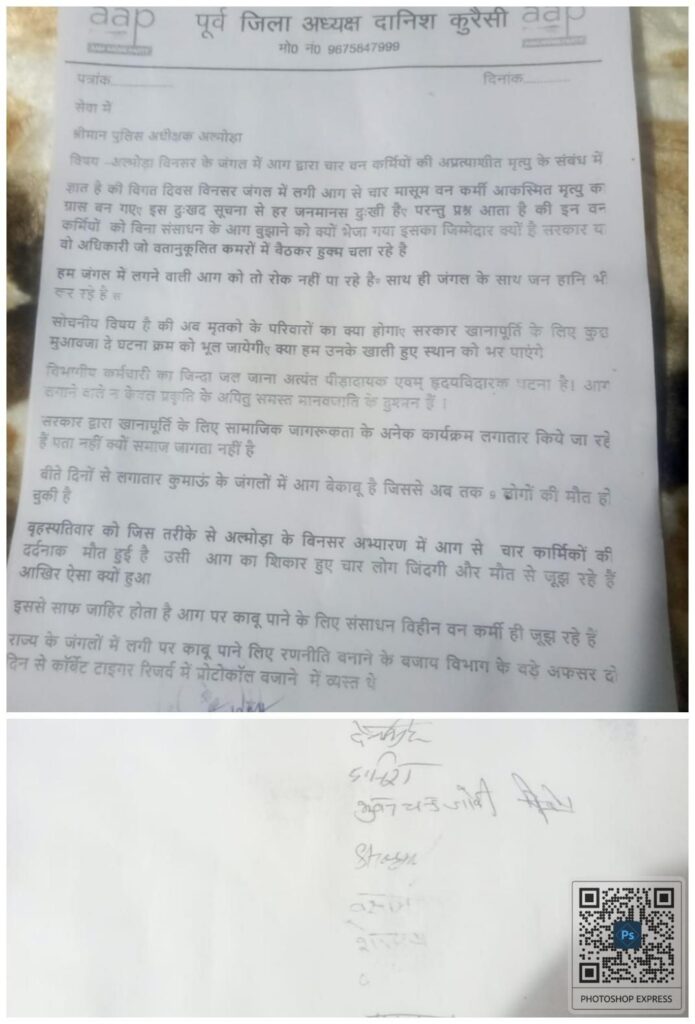 aap
पूर्व जिला अध्यक्ष दानिश कुरैसी
aap
मो0 नं0 9675847999
पत्रांक............
दिनांक............
सेवा में
श्रीमान पुलिस अधीक्षक अल्मोड़ा
विषय -अल्मोड़ा विनसर के जंगल में आग द्वारा चार वन कर्मियों की अप्रत्याशीत मृत्यु के संबंध में
ज्ञात है की विगत दिवस विनसर जंगल में लगी आग से चार मासूम वन कर्मी आकस्मित मृत्यु का
ग्रास बन गएए इस दुःखद सूचना से हर जनमानस दुःखी हैए परन्तु प्रश्न आता है की इन वन
कर्मियों को विना संसाधन के आग बुझाने को क्यों भेजा गया इसका जिम्मेदार क्यों है सरकार या
वो अधिकारी जो वतानुकूलित कमरों में बैठकर हुक्म चला रहे है
हम जंगल में लगने वाली आग को तो रोक नहीं पा रहे है साथ ही जंगल के साथ जन हानि भी
कर रहे है
सोचनीय विषय है की अब मृतको के परिवारों का क्या होगाए सरकार खानापूर्ति के लिए कुछ
मुआवजा दे घटना क्रम को भूल जायेगीए क्या हम उनके खाली हुए स्थान को भर पाएंगे
विभागीय कर्मचारी का जिन्दा जल जाना अत्यंत पीड़ादायक एवम् हृदयविदारक घटना है। आग
लगाने वाले न केवल प्रकृति के अपितु समस्त मानवजाति के दुश्मन हैं ।
सरकार द्वारा खानापूर्ति के लिए सामाजिक जागरूकता के अनेक कार्यक्रम लगातार किये जा रहे
हैं पता नहीं क्यों समाज जागता नहीं है
बीते दिनों से लगातार कुमाऊं के जंगलों में आग बेकाबू है जिससे अब तक 9 लोगों की मौत हो
चुकी है
वृहस्पतिवार को जिस तरीके से अल्मोड़ा के विनसर अभ्यारण में आग से चार कार्मिकों की
दर्दनाक मौत हुई है उसी आग का शिकार हुए चार लोग जिंदगी और मौत से जूझ रहे हैं
आखिर ऐसा क्यों हुआ
इससे साफ जाहिर होता है आग पर काबू पाने के लिए संसाधन विहीन वन कर्मी ही जूझ रहे हैं
राज्य के जंगलों में लगी पर काबू पाने लिए रणनीति बनाने के बजाय विभाग के बड़े अफसर दो
दिन से कॉर्बेट टाइगर रिजर्व में प्रोटोकॉल वजाने में व्यस्त थे
भुवन चन्द्र जोशी
Ps
PHOTOSHOP EXPRESS